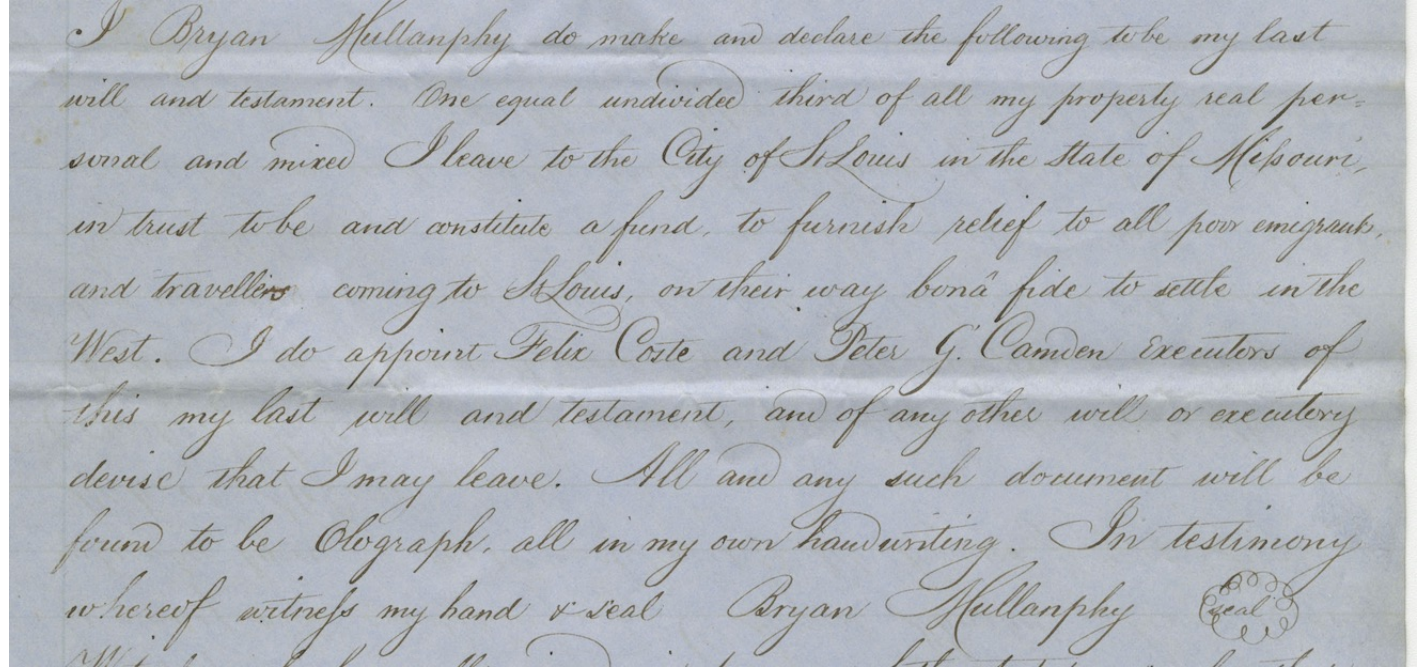 I Bryan Mullanphy do make and declare the following to be my last
will and testament. One equal undivided third of all my property real per=
sonal and mixed I leave to the City of St Louis in the State of Missouri,
in trust to be and constitute a fund, to furnish relief to all poor emigrants,
and travellers coming to St Louis, on their way bonâ fide to settle in the
West. I do appoint Felix Coste and Peter G. Camden Executors of
this my last will and testament, and of any other will or executory
devise that I may leave. All and any such document will be
found to be Olograph, all in my own handwriting. In testimony
whereof witness my hand & seal Bryan Mullanphy seal